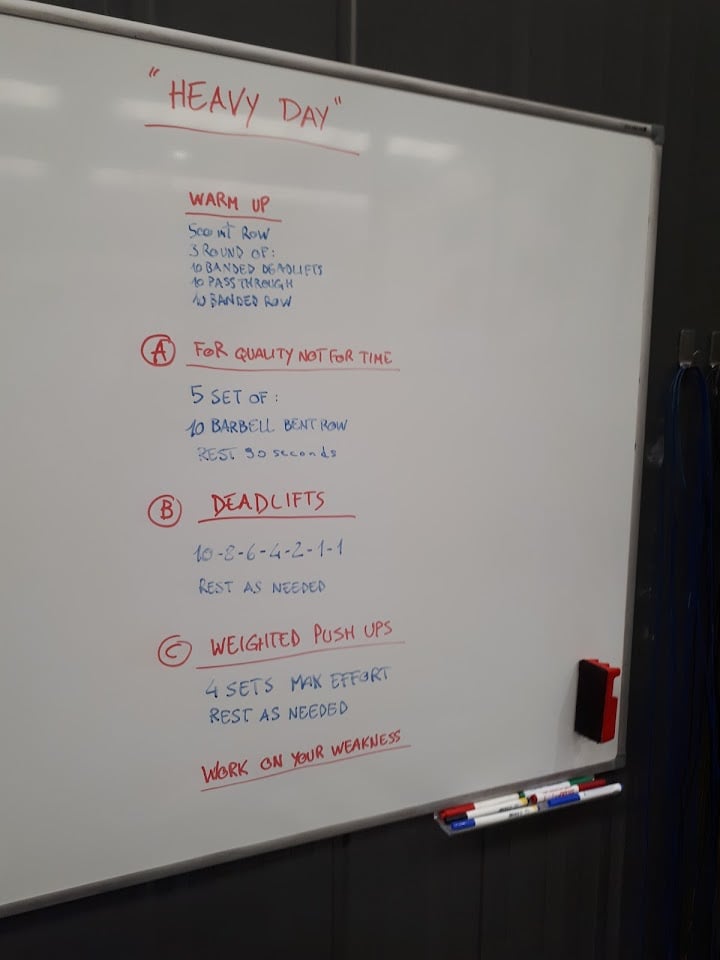 "HEAVY DAY"
WARM UP
500 mt ROW
3 ROUND OF:
10 BANDED DEADLIFTS
10 PASS THROUGH
10 BANDED ROW
A FOR QUALITY NOT FOR TIME
5 SET OF:
10 BARBELL BENT ROW
REST 90 seconds
B DEADLIFTS
10-8-6-4-2-1-1
REST AS NEEDED
C WEIGHTED PUSH UPS
4 SETS MAX EFFORT
REST AS NEEDED
WORK ON YOUR WEAKNESS